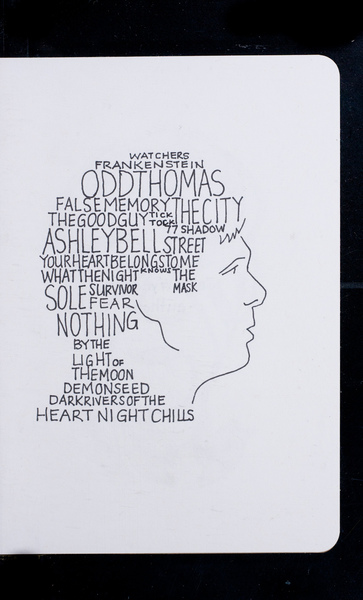 WATCHERS
FRANKENSTEIN
ODDTHOMAS
FALSEMEMORY THE CITY
THEGOODGUY TICK TOCK
77 SHADOW
ASHLEYBELL STREET
YOURHEARTBELONGSTOME
WHATTHENIGHT KNOWS THE
MASK
SOLE SURVIVOR
FEAR
NOTHING
BY THE
LIGHT OF
THEMOON
DEMONSEED
DARKRIVERSOFTHE
HEART NIGHT CHILLS